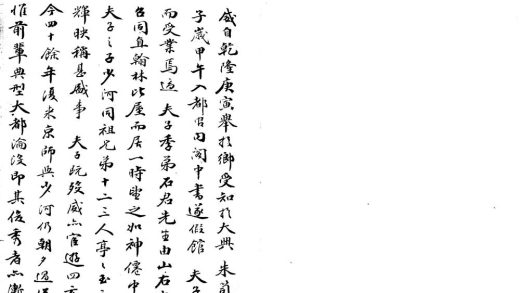 威自乾隆庚寅舉於鄉受知於大興 朱
子歲甲午入都召內閣中書遂假館 夫子
而受業焉適 夫子季弟石君先生由山右
召同直翰林比屋而居一時望之如神僊中
夫子之子少河同祖兄弟十二三人亭亭玉
輝映稱甚盛事 夫子既歿威亦宦遊四
今四十餘年復來京師與少河仍朝夕過
惟前輩典型大都淪沒即其俊秀者亦漸